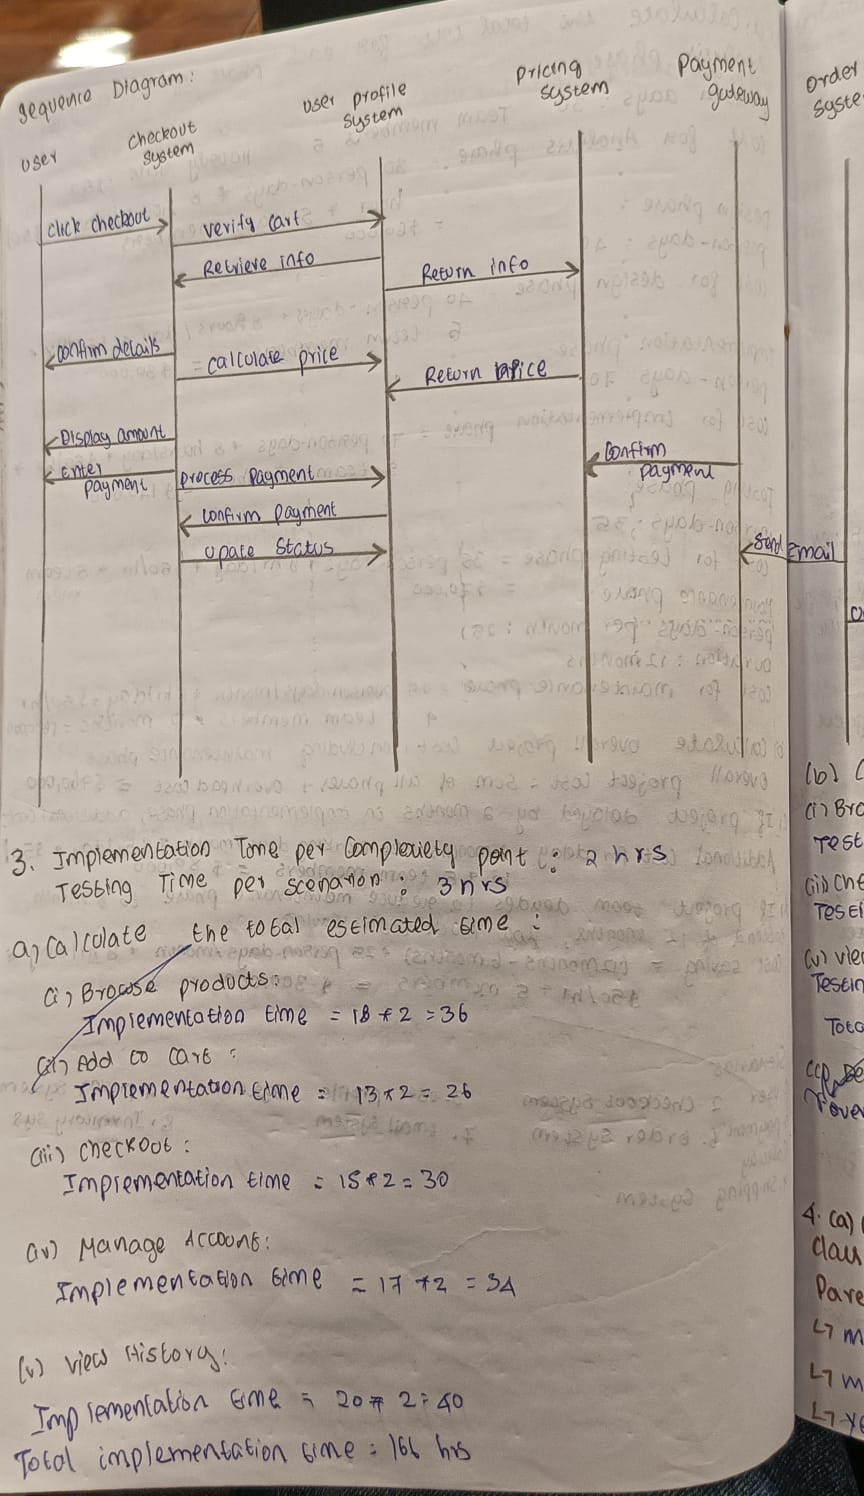 Sequence Diagram:
user
checkout system
user profile system
Pricing system
Payment gateway
order
syste
click checkout
verify cart
Retrieve info
Return info
confirm details
calculate price
Return price
Display amount
enter payment
process payment
confirm payment
confirm payment
upate status
send email
3. Implementation Tome per complexiety point : 2 hrs
Testing Time per scenarion : 3 hrs
a) Calculate the total estimated time :
(i) Browse products:
Implementation time = 18 * 2 = 36
(ii) Add to cart :
Implementation time = 13 * 2 = 26
(iii) checkout :
Implementation time = 15 * 2 = 30
(iv) Manage Account:
Implementation time = 17 * 2 = 34
(v) view History:
Implementation time = 20 * 2 = 40
Total implementation time = 166 hrs
(b) C
(i) Bro
Test
(ii) che
Testi
(v) vie
Testin
Tota
over
4. (a)
Class
Pare
↳ m
↳ m